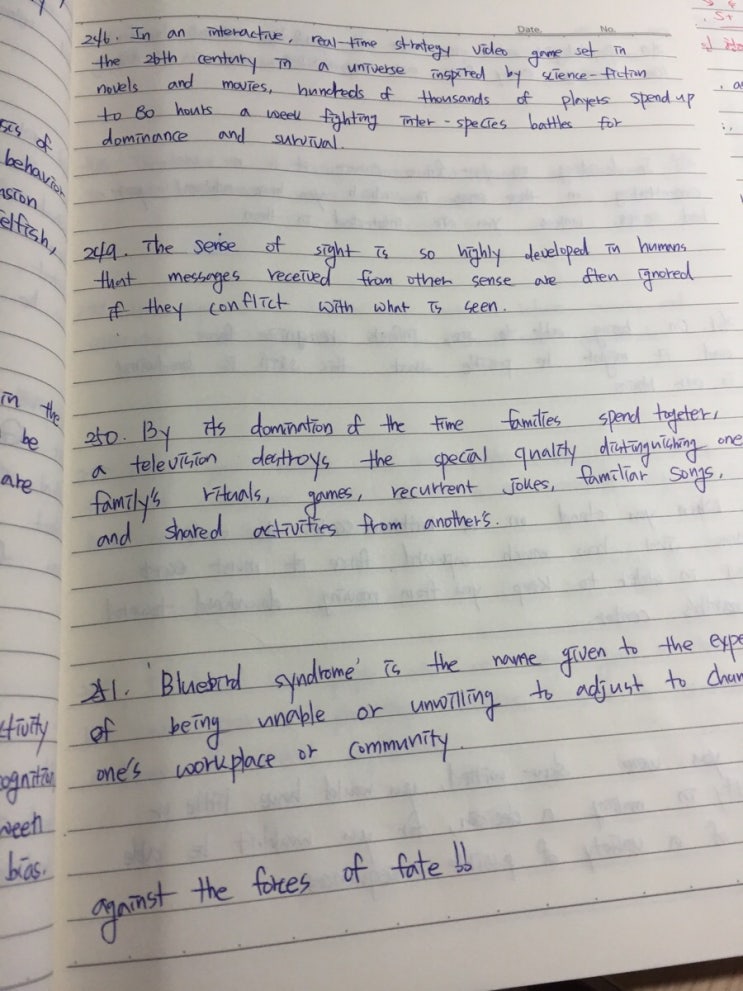 Date. No.
246. In an interactive, real-time strategy video game set in
the 26th century in a universe inspired by science-fiction
novels and movies, hundreds of thousands of players spend up
to 80 hours a week fighting inter-species battles for
dominance and survival.
249. The sense of sight is so highly developed in humans
that messages received from other sense are often ignored
if they conflict with what is seen.
250. By its domination of the time families spend togeter,
a television destroys the special quality distinguishing one
family's rituals, games, recurrent jokes, familiar songs,
and shared activities from another's.
251. 'Bluebird syndrome' is the name given to the expe
of being unable or unwilling to adjust to chan
one's workplace or community.
against the forces of fate!!
sis of
behavior
elfish,
in the
be
are
ctivity
ognition
ween
bias.